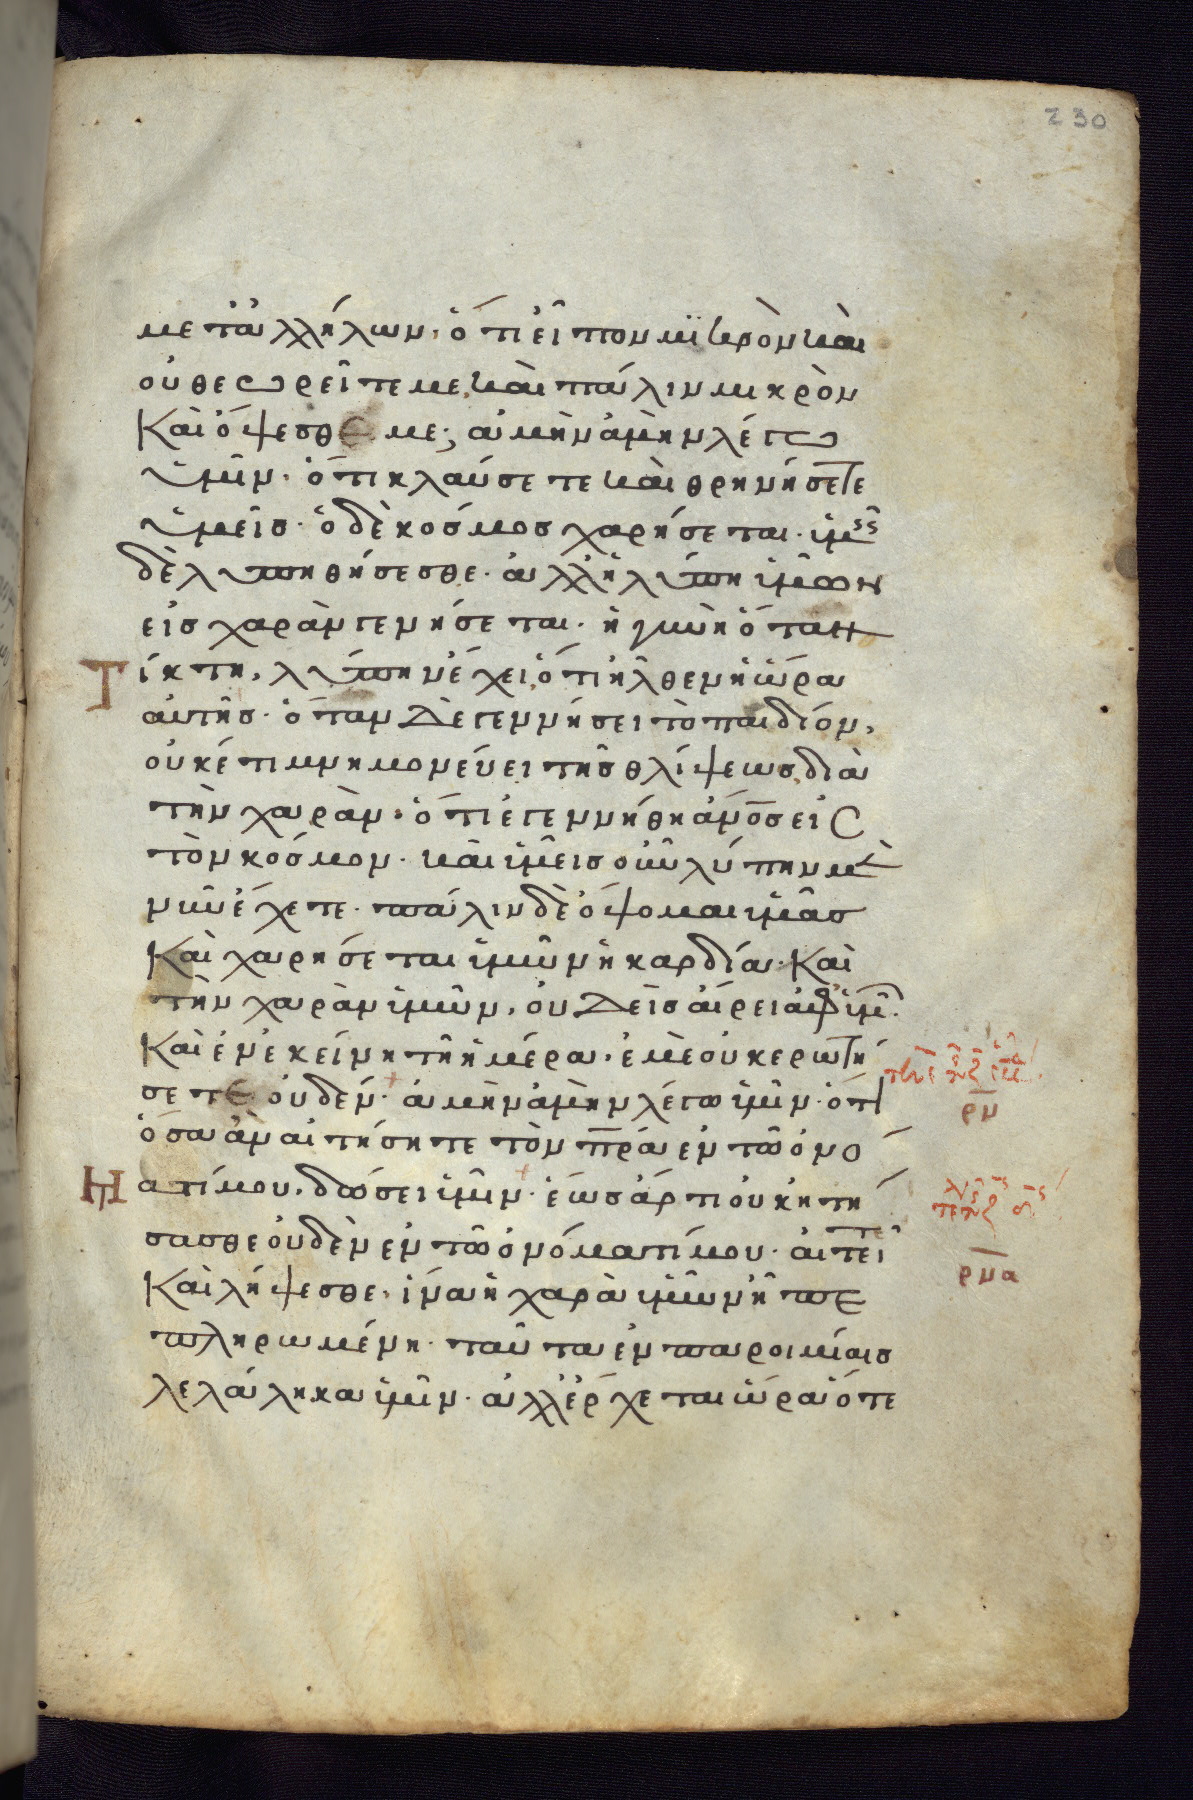 230
μετ ἀλλήλων· ὅτι εἶπον μϊκρὸν καὶ
οὐ θεωρεῖτέ με, καὶ πάλιν μικρὸν
Καὶ ὄψεσθέ με; ἀμὴν ἀμὴν λέγω
ὑμῖν· ὅτι κλαύσετε καὶ θρηνήσετε
ὑμεῖς· ὁ δὲ κόσμος χαρήσεται· ὑμς
δὲ λυπηθήσεσθε· ἀλλ ἡ λύπη ὑμῶν
εἰς χαρὰν γενήσεται· ἡ γυνὴ ὅταν
Τίκτη, λύπην ἔχει, ὅτι ἦλθεν ἡ ὥρα
αὐτῆς· ὅταν δὲ γεννήσει τὸ παιδίον,
οὐκέτι μνημονεύει τῆς θλίψεως διὰ
τὴν χαρὰν· ὅτι ἐγεννήθη ἀνος εἰς
τὸν κόσμον· καὶ ὑμεῖς οὖν λύπην μὲ
νῦν ἔχετε· πάλιν δὲ ὄψομαι ὑμᾶς
Καὶ χαρήσεται ὑμῶν ἡ καρδία· Καὶ
τὴν χαρὰν ὑμῶν, οὐδεὶς αἴρει ἀφ ὑμ·
Καὶ ἐν ἐκείνη τῆ ἡμέρα· ἐμὲ οὐκ ερωτή
σετε οὐδέν· ἀμὴν ἀμὴν λέγω ὑμῖν· ὅτι
ρν
ὅσα ἂν αἰτήσητε τὸν πρα ἐν τῶ ὀνό
Ηατί μου, δώσει ὑμῖν· ἕως ἄρτι οὐκ ητή
σασθε οὐδὲν ἐν τῶ ὀνόματί μου· αἰτεῖτε
ρνα
Καὶ λήψεσθε· ἵνα ἡ χαρὰ ὑμῶν ἦ πε
πληρωμένη· ταῦτα ἐν παροιμίαις
λελάληκα ὑμῖν· ἀλλ ἔρχεται ὥρα ὅτε